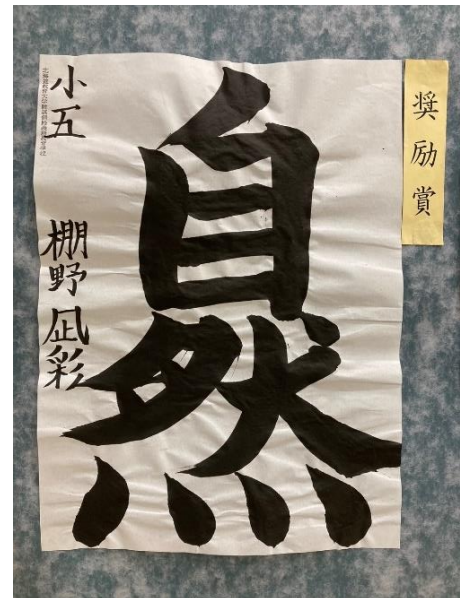 奨励賞
自然
小五
棚野凪彩